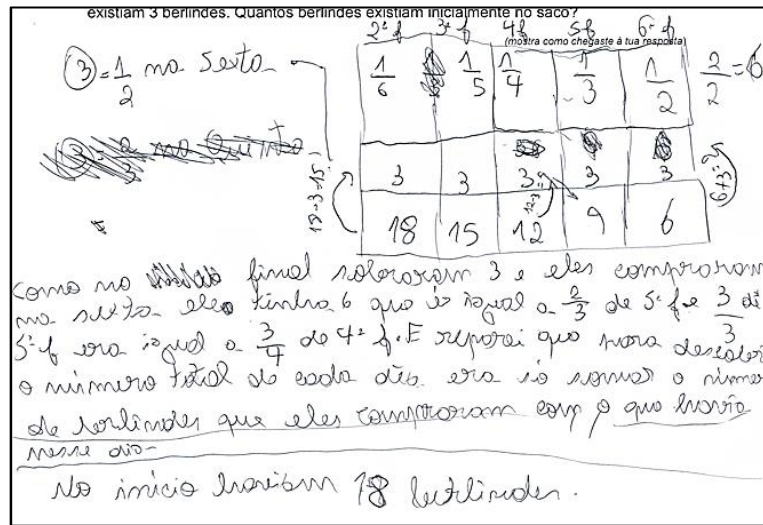 existiam 3 berlindes. Quantos berlindes existiam inicialmente no saco?
(mostra como chegaste à tua resposta)
2ª f 3ª f 4ª f 5ª f 6ª f
3 = 1/2 na sexta
1/6 1/5 1/4 1/3 1/2 2/2 = 6
3 3 3 3 3
18 15 12 9 6
18-3=15
12-3=9
6+3=9
como no final sobraram 3 e eles compraram
na sexta eles tinha 6 que é igual a 2/3 de 5ª f e 3/3 de
5ª f era igual a 3/4 de 4ª f. E reparei que para descobrir
o número total de cada dia era só somar o número
de berlindes que eles compraram com o que havia
nesse dia.
No início haviam 18 berlindes.